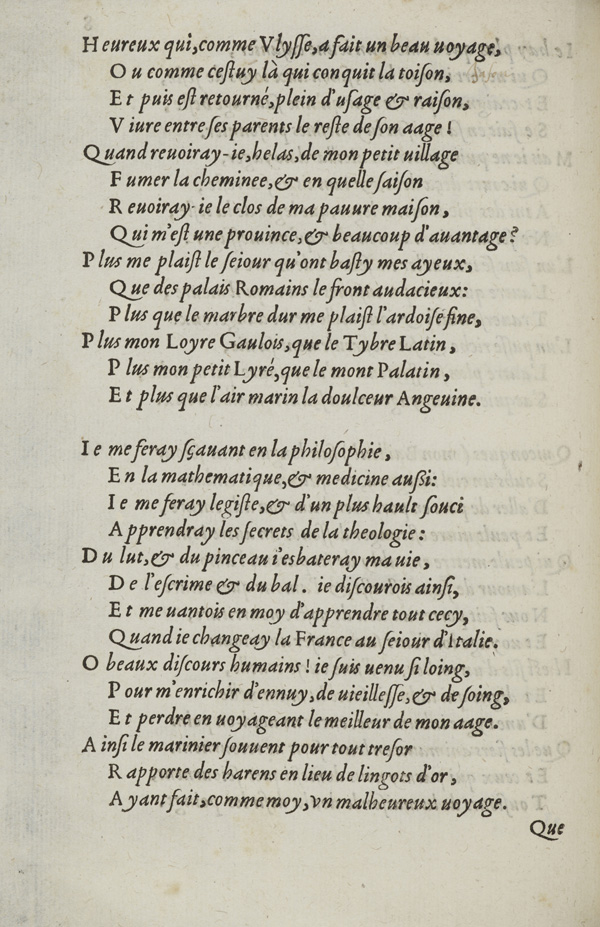 Heureux qui, comme Vlyſſe, a fait un beau uoyage,
Ou comme ceſtuy là qui conquit la toiſon,
Et puis eſt retourné, plein d'uſage & raiſon,
Viure entre ſes parents le reſte de ſon aage!
Quand reuoiray-ie, helas, de mon petit uillage
Fumer la cheminee, & en quelle ſaiſon
Reuoiray-ie le clos de ma pauure maiſon,
Qui m'eſt une prouince, & beaucoup d'auantage?
Plus me plaiſt le ſeiour qu'ont baſty mes ayeux,
Que des palais Romains le front audacieux:
Plus que le marbre dur me plaiſt l'ardoiſe fine,
Plus mon Loyre Gaulois, que le Tybre Latin,
Plus mon petit Lyré, que le mont Palatin,
Et plus que l'air marin la doulceur Angeuine.
Ie me feray ſçauant en la philoſophie,
En la mathematique, & medicine außi:
Ie me feray legiſte, & d'un plus hault ſouci
Apprendray les ſecrets de la theologie:
Du lut, & du pinceau i'esbateray ma uie,
De l'eſcrime & du bal. ie diſcourois ainſi,
Et me uantois en moy d'apprendre tout cecy,
Quand ie changeay la France au ſeiour d'Italie.
O beaux diſcours humains! ie ſuis uenu ſi loing,
Pour m'enrichir d'ennuy, de uieilleſſe, & de ſoing,
Et perdre en uoyageant le meilleur de mon aage.
Ainſi le marinier ſouuent pour tout treſor
Rapporte des harens en lieu de lingots d'or,
Ayant fait, comme moy, vn malheureux uoyage.
Que